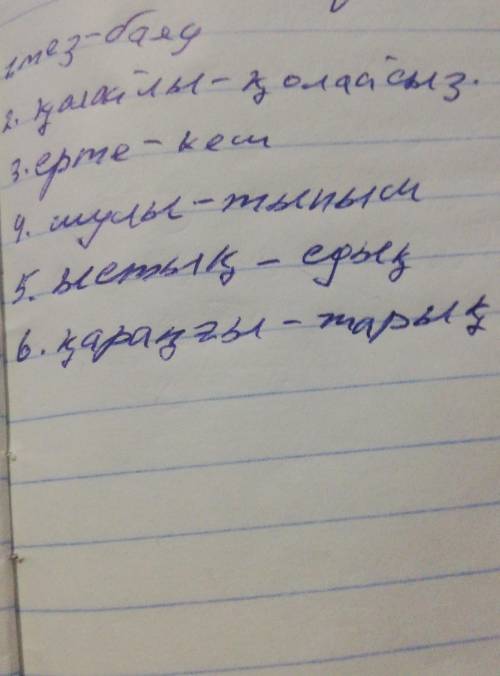 1. тез - баяу
2. қолайлы - қолайсыз.
3. ерте - кеш
4. шулы - тыныш
5. ыстық - суық
6. қараңғы - жарық